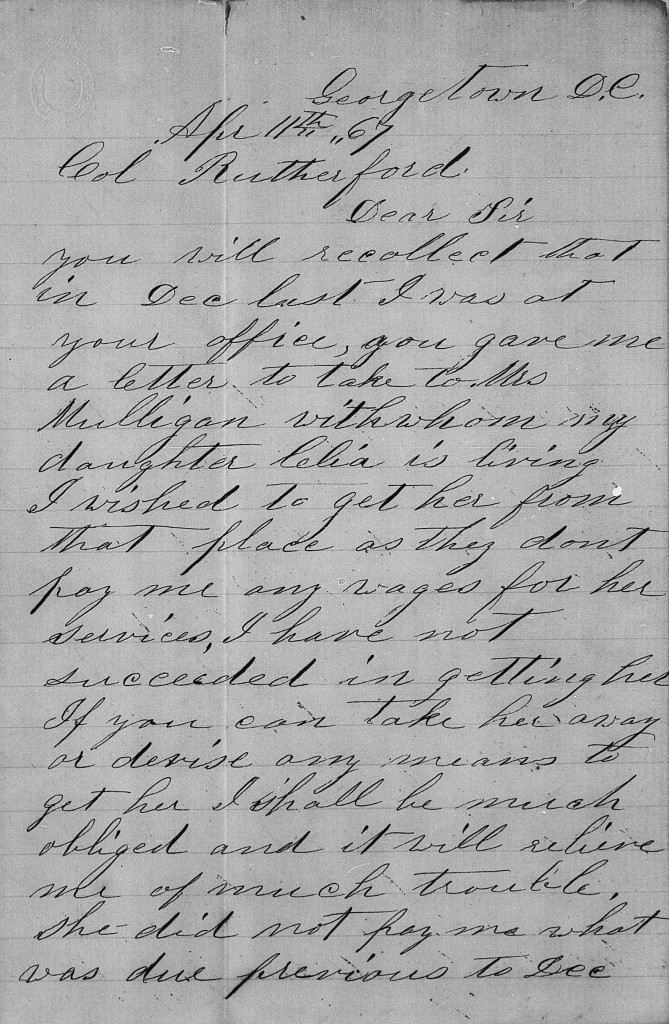 Georgetown D.C.
Apr 11th "67
Col Rutherford.
Dear Sir
you will recollect that
in Dec last I was at
your office, you gave me
a letter to take to Mrs
Mulligan with whom my
daughter Celia is living
I wished to get her from
that place as they dont
pay me any wages for her
services, I have not
succeeded in getting her
If you can take her away
or devise any means to
get her I shall be much
obliged and it will relieve
me of much trouble,
she did not pay me what
was due previous to Dec